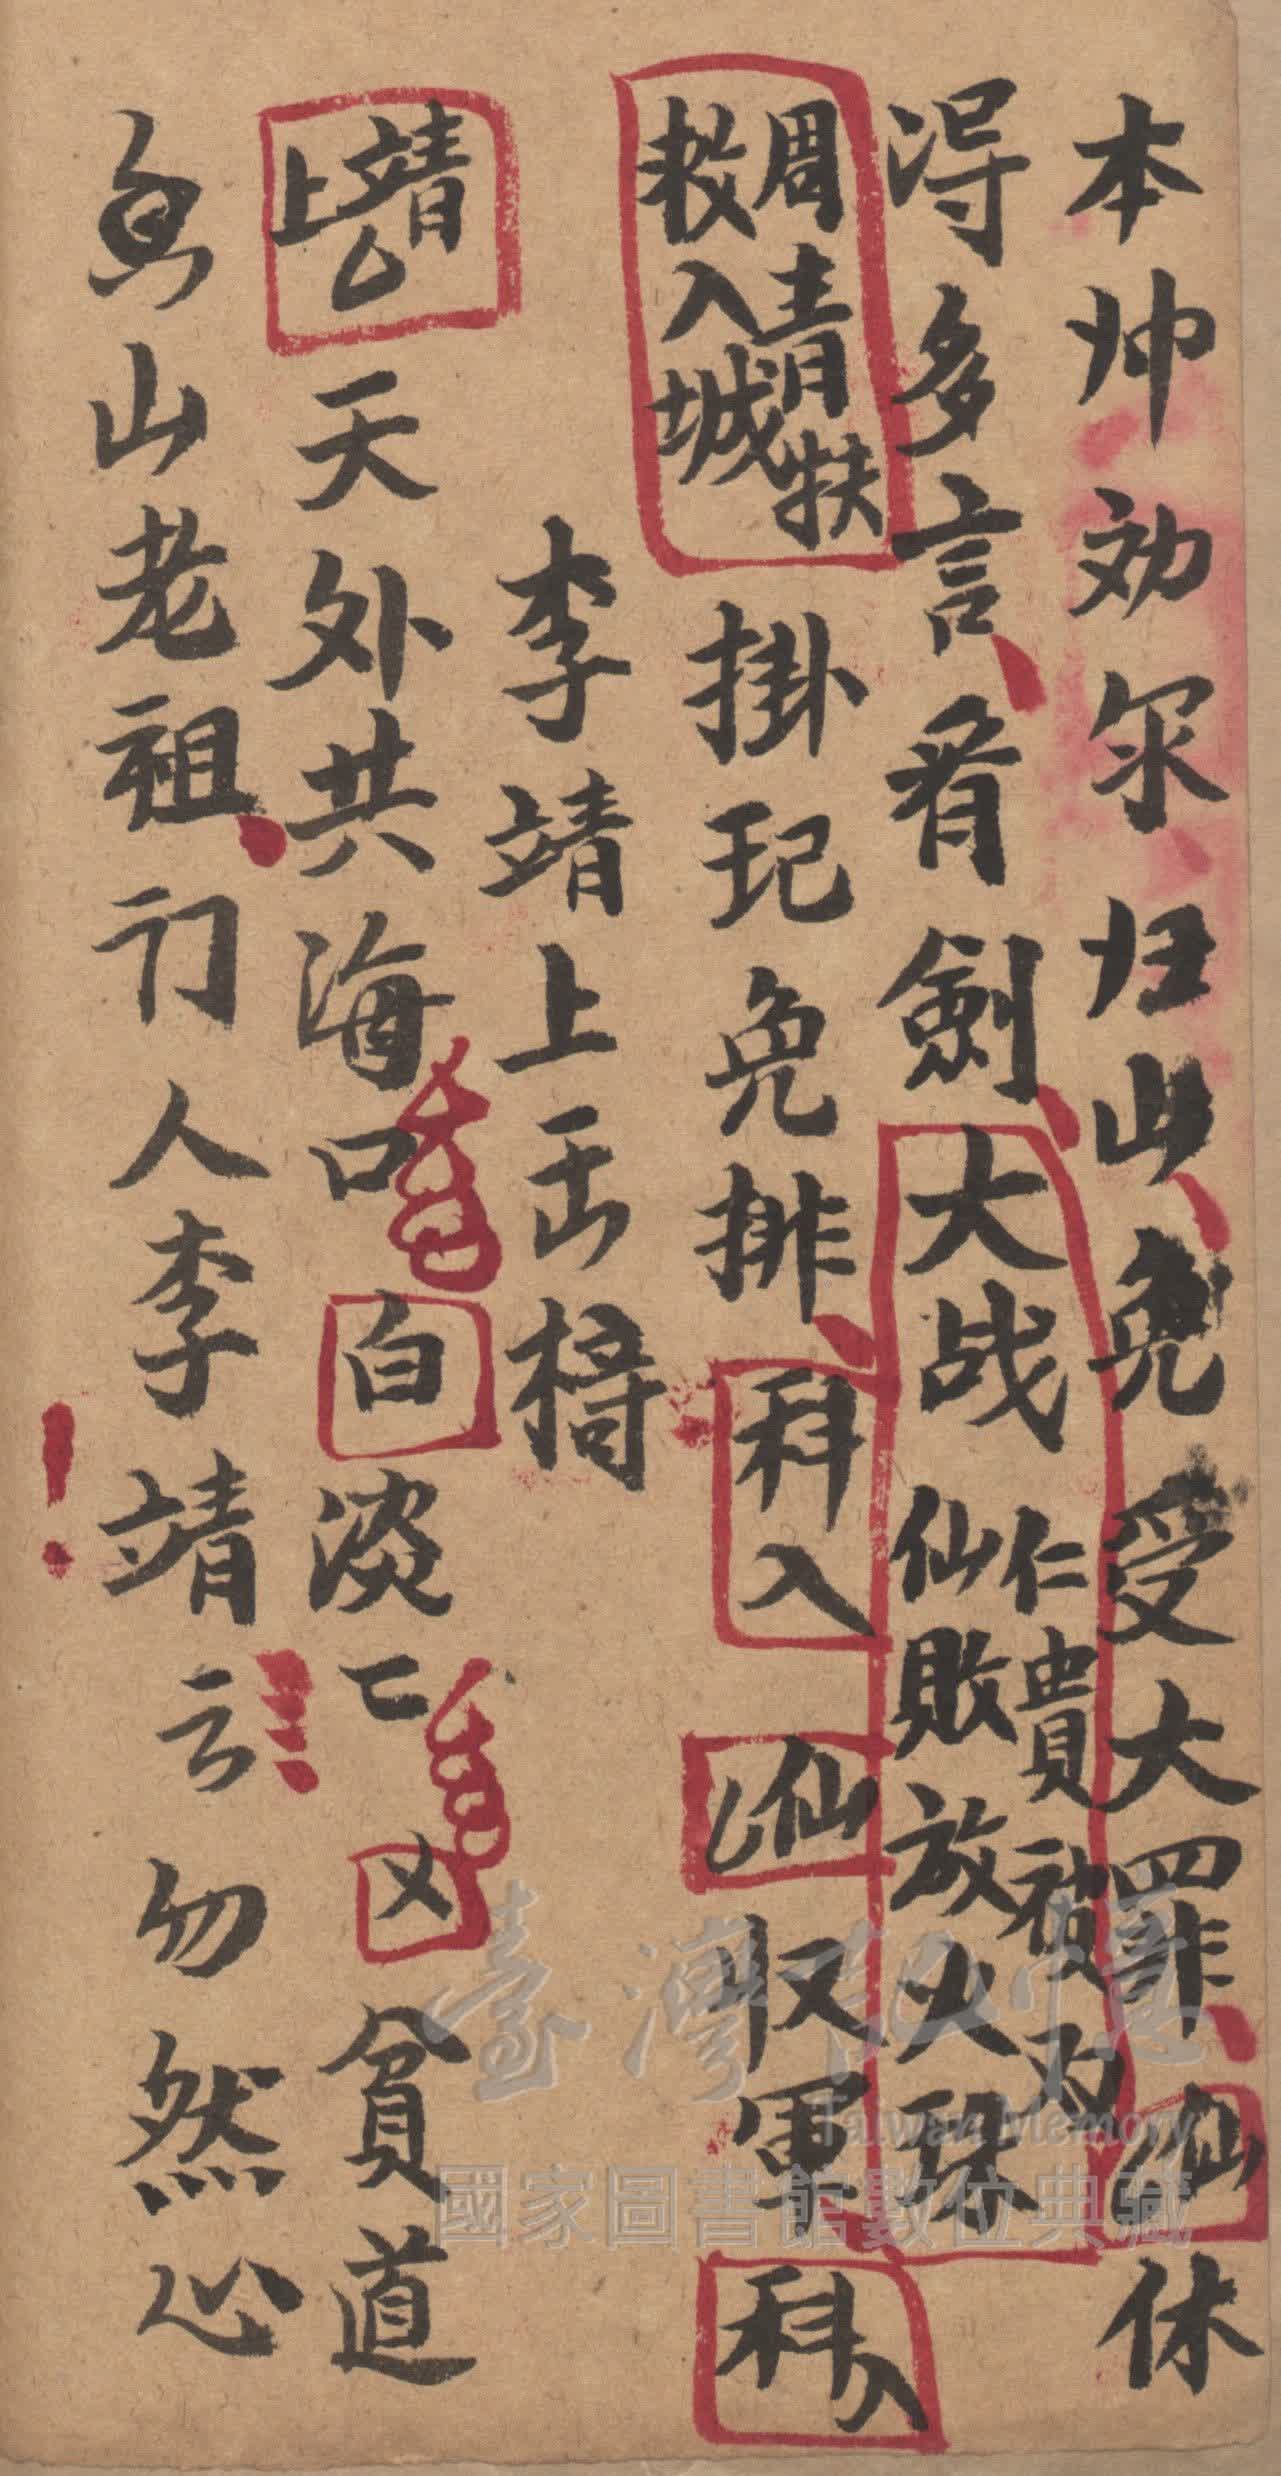 本帅効尔归山免受大罪仙休
淂多言看劍大战仁貴被
仙敗放火珠
周青扶
救入城
掛玘免排科入仙収軍科入
李靖上
靖上
天外共海口白淡
又貧道
山老祖门人李靖云勿然心
臺灣記憶
Taiwan Memory
國家圖書館數位典藏